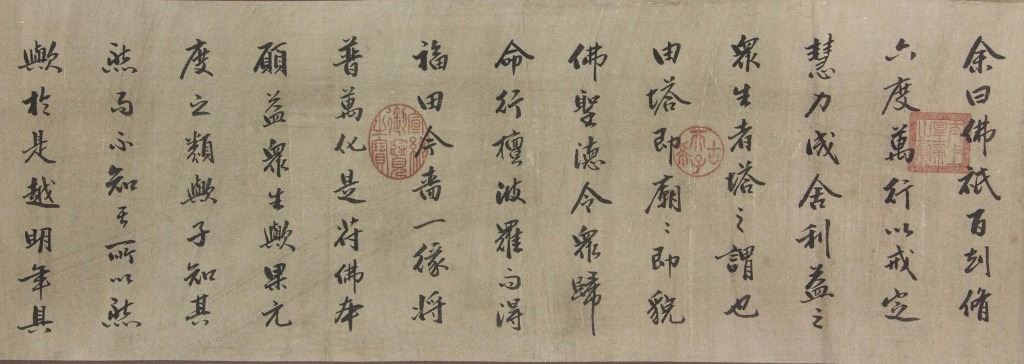 余曰佛祇百刧脩
六度萬行以戒定
慧力成舍利益之
眾生者塔之謂也
由塔即廟〻即貌
佛聖德令眾歸
命行檀波羅而得
福田余嗇一緣将
普萬化是符佛本
願益眾生歟果允
度之類歟予知其
然而不知其所以然
歟於是越明年具